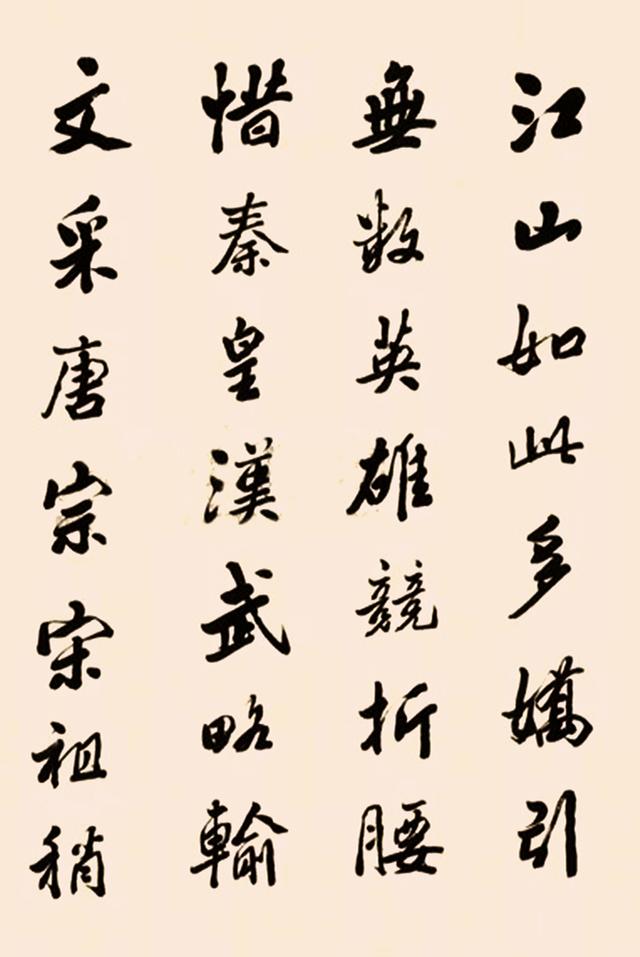 江山如此多嬌引
無數英雄競折腰
惜秦皇漢武略輸
文采唐宗宋祖稍